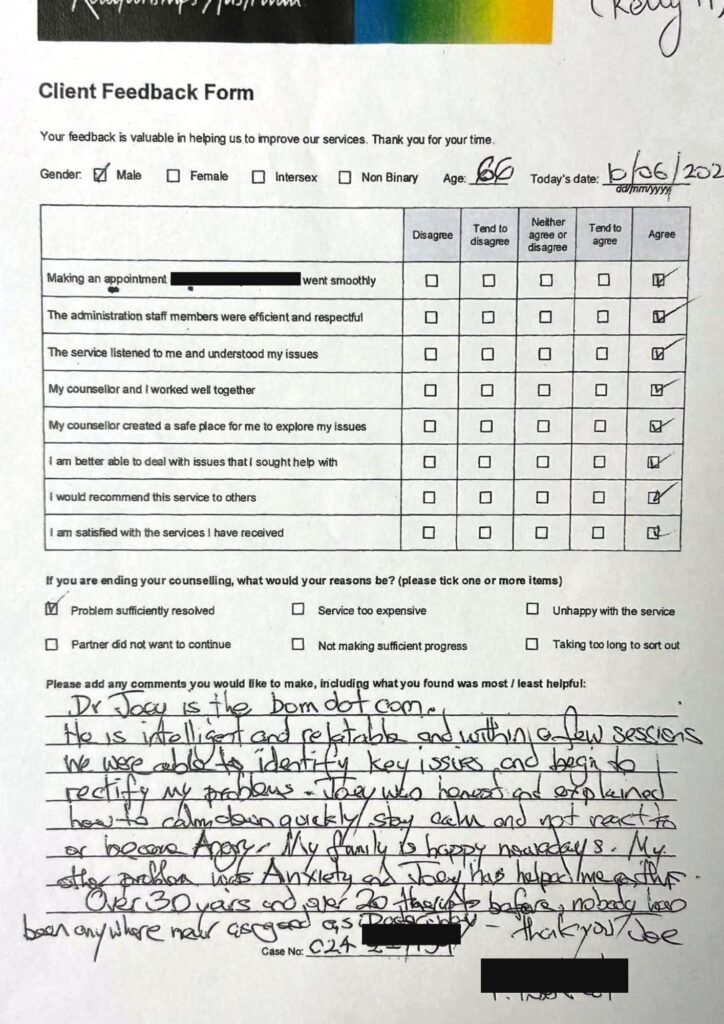 Relationships Australia
(Kelly
Client Feedback Form
Your feedback is valuable in helping us to improve our services. Thank you for your time.
Gender: Male Female Intersex Non Binary Age: 66 Today's date: 10/06/202
dd/mm/yyyy
Disagree Tend to disagree Neither agree or disagree Tend to agree Agree
Making an appointment went smoothly
The administration staff members were efficient and respectful
The service listened to me and understood my issues
My counsellor and I worked well together
My counsellor created a safe place for me to explore my issues
I am better able to deal with issues that I sought help with
I would recommend this service to others
I am satisfied with the services I have received
If you are ending your counselling, what would your reasons be? (please tick one or more items)
Problem sufficiently resolved Service too expensive Unhappy with the service
Partner did not want to continue Not making sufficient progress Taking too long to sort out
Please add any comments you would like to make, including what you found was most / least helpful:
Dr Joey is the bom dot com.
He is intelligent and relatable and within a few sessions
we were able to identify key issues and begin to
rectify my problems. Joey was honest and explained
how to calm down quickly, stay calm and not react to
or become Angry. My family is happy nowadays. My
other problem was Anxiety and Joey has helped me
Over 30 years and over 20 before, nobody has
been anywhere near as good as - thank you Joe
Case No: C24